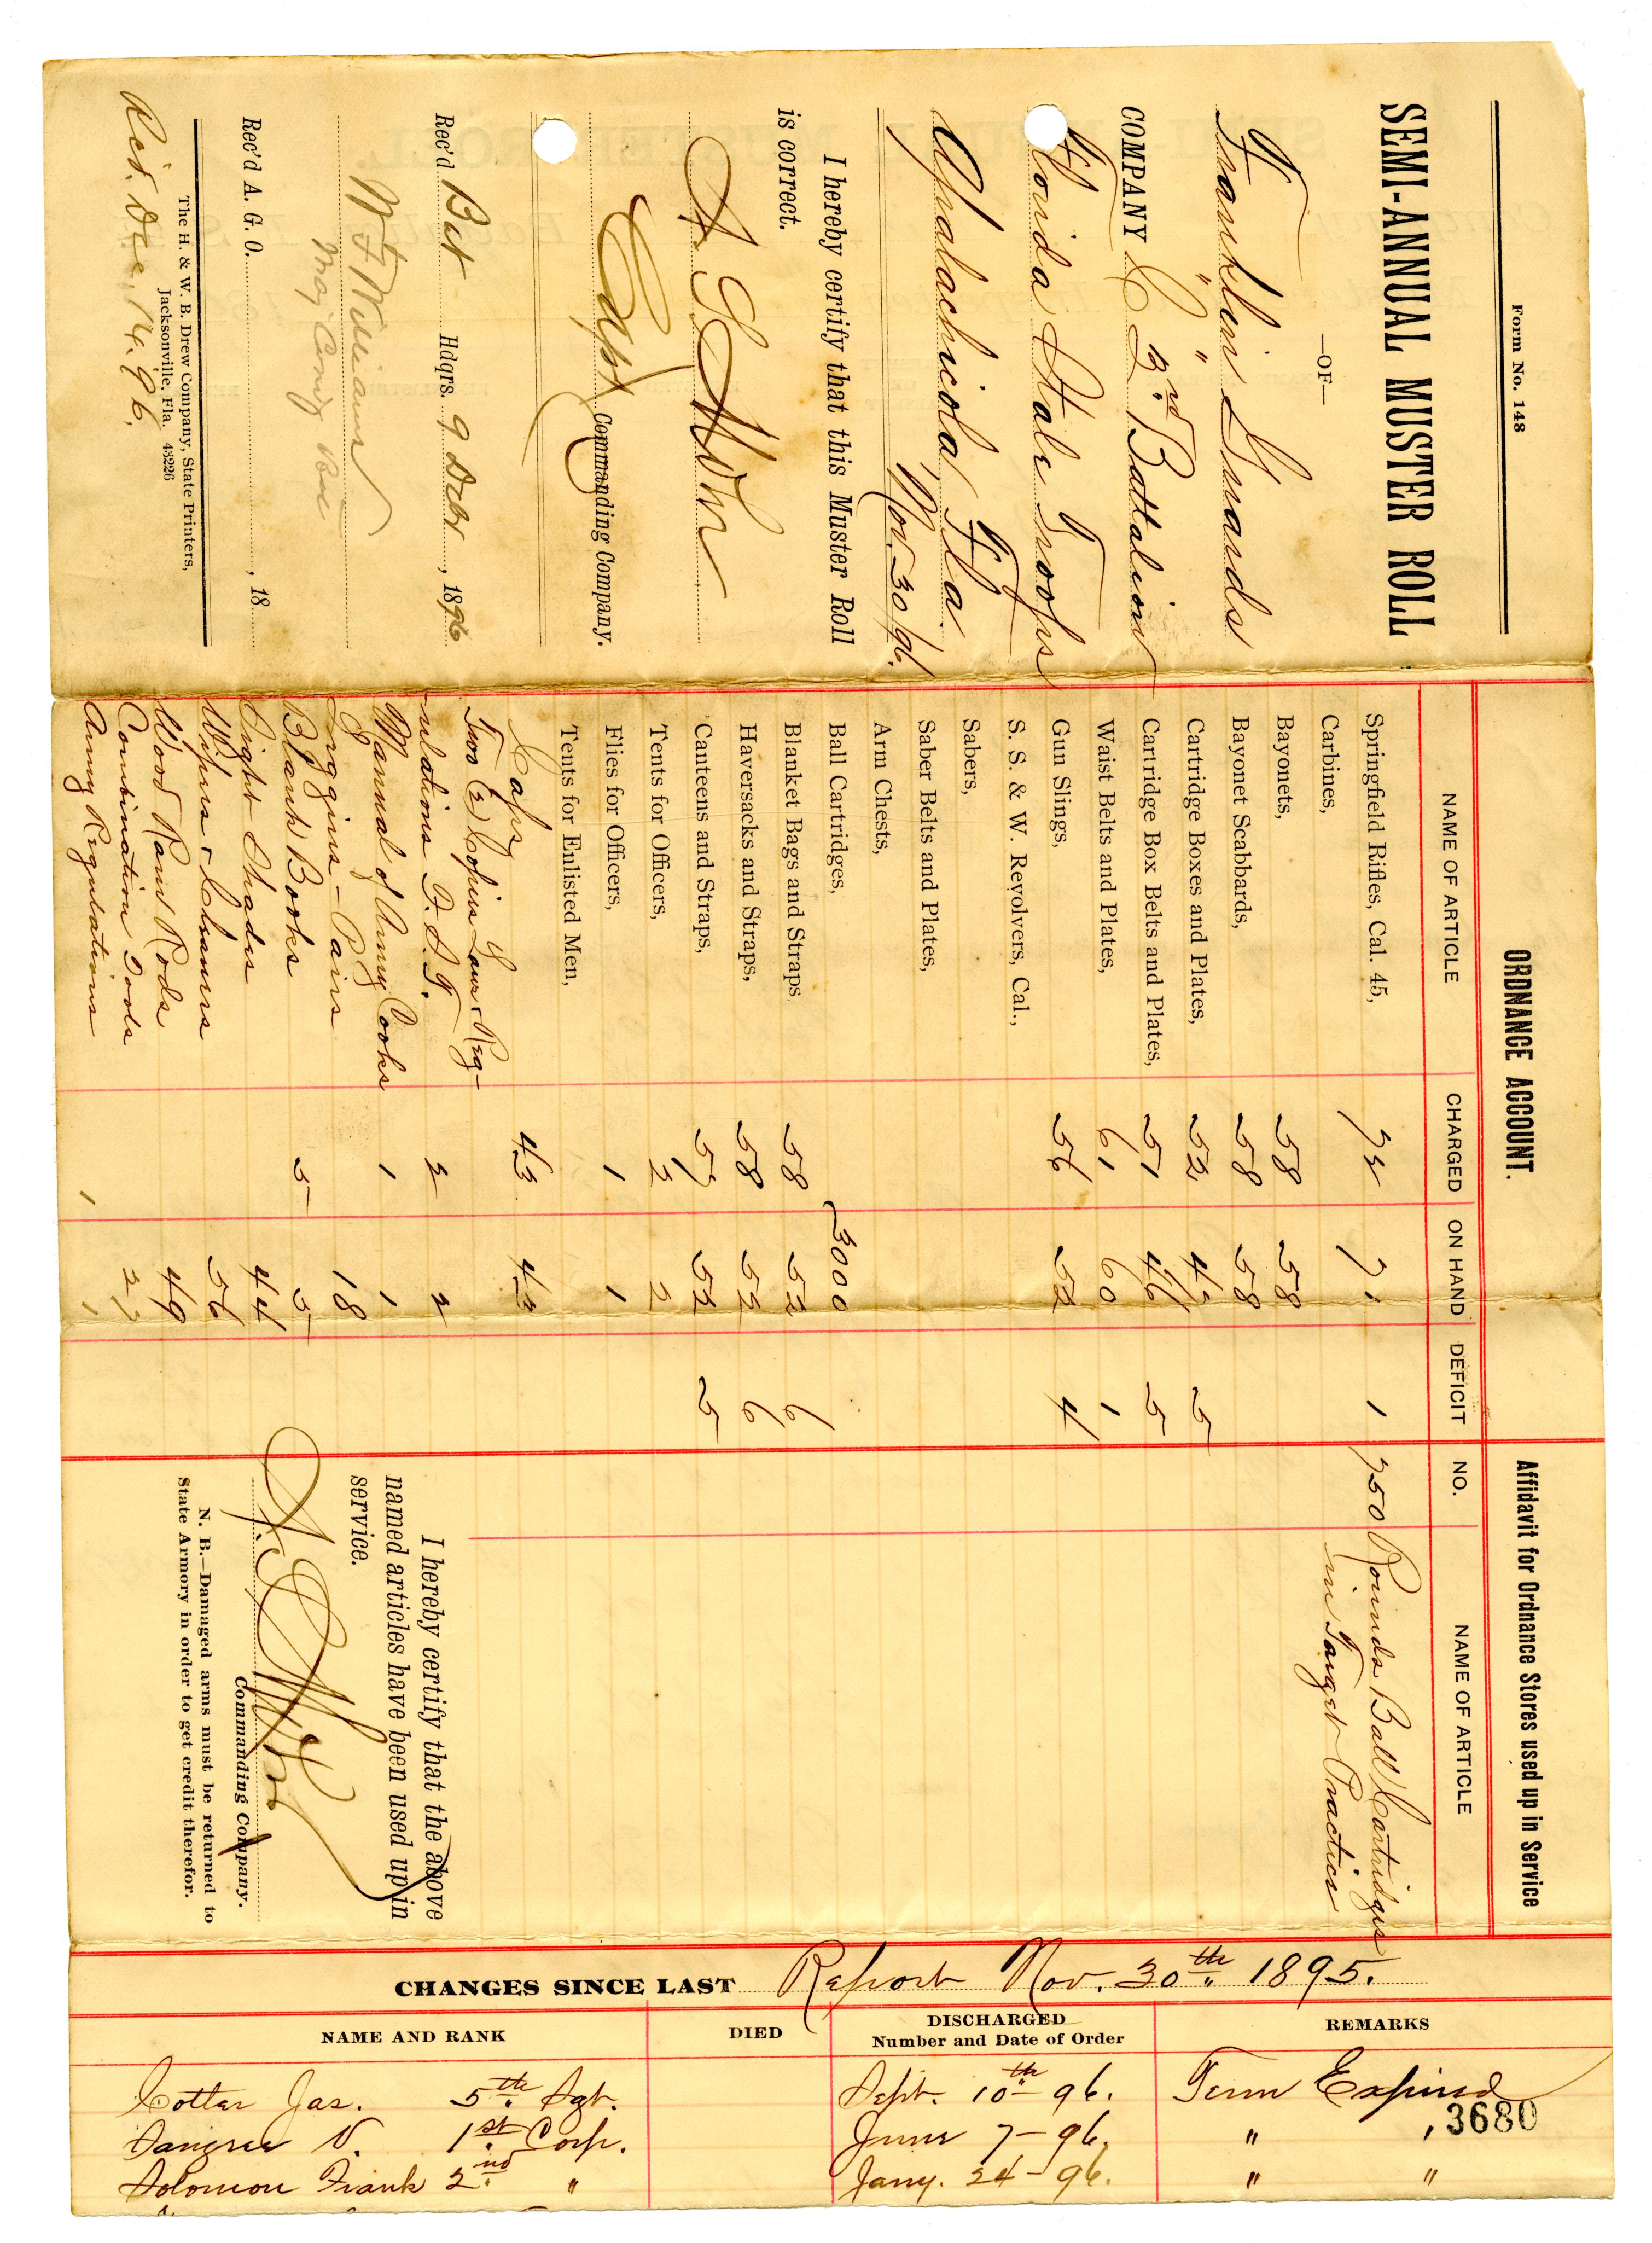 Form No. 148
SEMI-ANNUAL MUSTER ROLL
—OF—
Franklin Guards
" "
COMPANY C 3rd Battalion
Florida State Troops
Apalachicola, Fla.
Nov. 30 96.
I hereby certify that this Muster Roll
is correct.
Capt Commanding Company.
Rec'd Bat Hdqrs. 9 Decbr, 1896
W F Williams
Maj Comdg Bat
Rec'd A. G. O. , 18
The H. & W. B. Drew Company, State Printers,
Jacksonville, Fla. 43226
Rec'd. Dec. 14. 96.
ORDNANCE ACCOUNT.
NAME OF ARTICLE CHARGED ON HAND DEFICIT
Springfield Rifles, Cal. 45, 72 71 1
Carbines,
Bayonets, 58 58
Bayonet Scabbards, 58 58
Cartridge Boxes and Plates, 52 5
Cartridge Box Belts and Plates, 51 46 5
Waist Belts and Plates, 61 60 1
Gun Slings, 56 52 4
S. S. & W. Revolvers, Cal.,
Sabers,
Saber Belts and Plates,
Arm Chests,
Ball Cartridges, 3000
Blanket Bags and Straps 58 52 6
Haversacks and Straps, 58 52 6
Canteens and Straps, 57 52 5
Tents for Officers, 2 2
Flies for Officers, 1 1
Tents for Enlisted Men,
Caps 43 43
Two (2) Copies Laws & Reg-
ulations F. S. T. 2 2
Manual of Army Cooks 1 1
Leggins - Pairs 18
Blank Books 5 5
Sight Shades 44
Wipers & Cleaners 56
Wood Ram Rods 49
Combination Tools 22
Army Regulations 1 1
Affidavit for Ordnance Stores used up in Service
NO. NAME OF ARTICLE
750 Rounds Ball Cartridges
in Target Practice
I hereby certify that the above
named articles have been used up in
service.
Commanding Company.
N. B.—Damaged arms must be returned to
State Armory in order to get credit therefor.
CHANGES SINCE LAST Report Nov. 30th 1895.
NAME AND RANK DIED DISCHARGED REMARKS
Number and Date of Order
Cotter Jas. 5th Sgt. Sept. 10th 96. Term Expired
3680
Sangree N. 1st Corp. June 7 - 96. " "
Solomon Frank 2nd " Jany. 24 - 96. " "